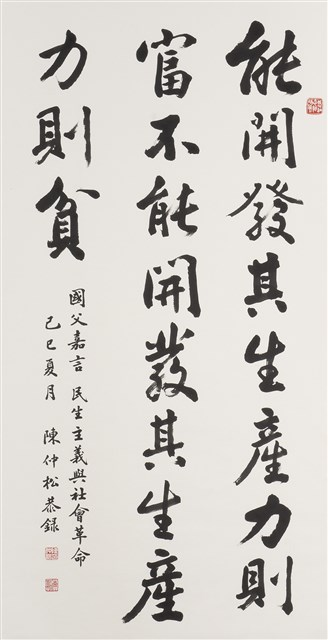 能開發其生產力則
富不能開發其生產
力則貧
國父嘉言 民生主義與社會革命
己巳夏月 陳仲松恭錄